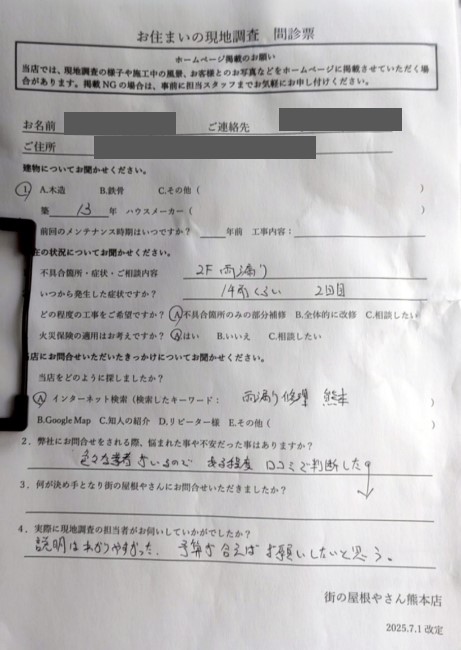 お住まいの現地調査 問診票
ホームページ掲載のお願い
当店では、現地調査の様子や施工中の風景、お客様とのお写真などをホームページに掲載させていただく場
合があります。掲載NGの場合は、事前に担当スタッフまでお気軽にお申し付けください。
お名前 ご連絡先
ご住所
建物についてお聞かせください。
1 A.木造 B.鉄骨 C.その他 ( )
築 13 年 ハウスメーカー ( )
前回のメンテナンス時期はいつですか? 年前 工事内容:
在の状況についてお聞かせください。
不具合箇所・症状・ご相談内容 2F 雨漏り
いつから発生した症状ですか? くらい 2回目
どの程度の工事をご希望ですか? A不具合箇所のみの部分補修 B.全体的に改修 C.相談したい
火災保険の適用はお考えですか? Aはい B.いいえ C.相談したい
当店にお問合せいただいたきっかけについてお聞かせください。
当店をどのように探しましたか?
A インターネット検索(検索したキーワード: 雨漏り修理 熊本 )
B.Google Map C.知人の紹介 D.リピーター様 E.その他 ( )
2.弊社にお問合せをされる際、悩まれた事や不安だった事はありますか?
色々な業者 いるので ある程度 口コミで判断した
3.何が決め手となり街の屋根やさんにお問合せいただきましたか?
4.実際に現地調査の担当者がお伺いしていかがでしたか?
説明はわかりやすかった。予算が合えばお願いしたいと思う。
街の屋根やさん熊本店
2025.7.1 改定